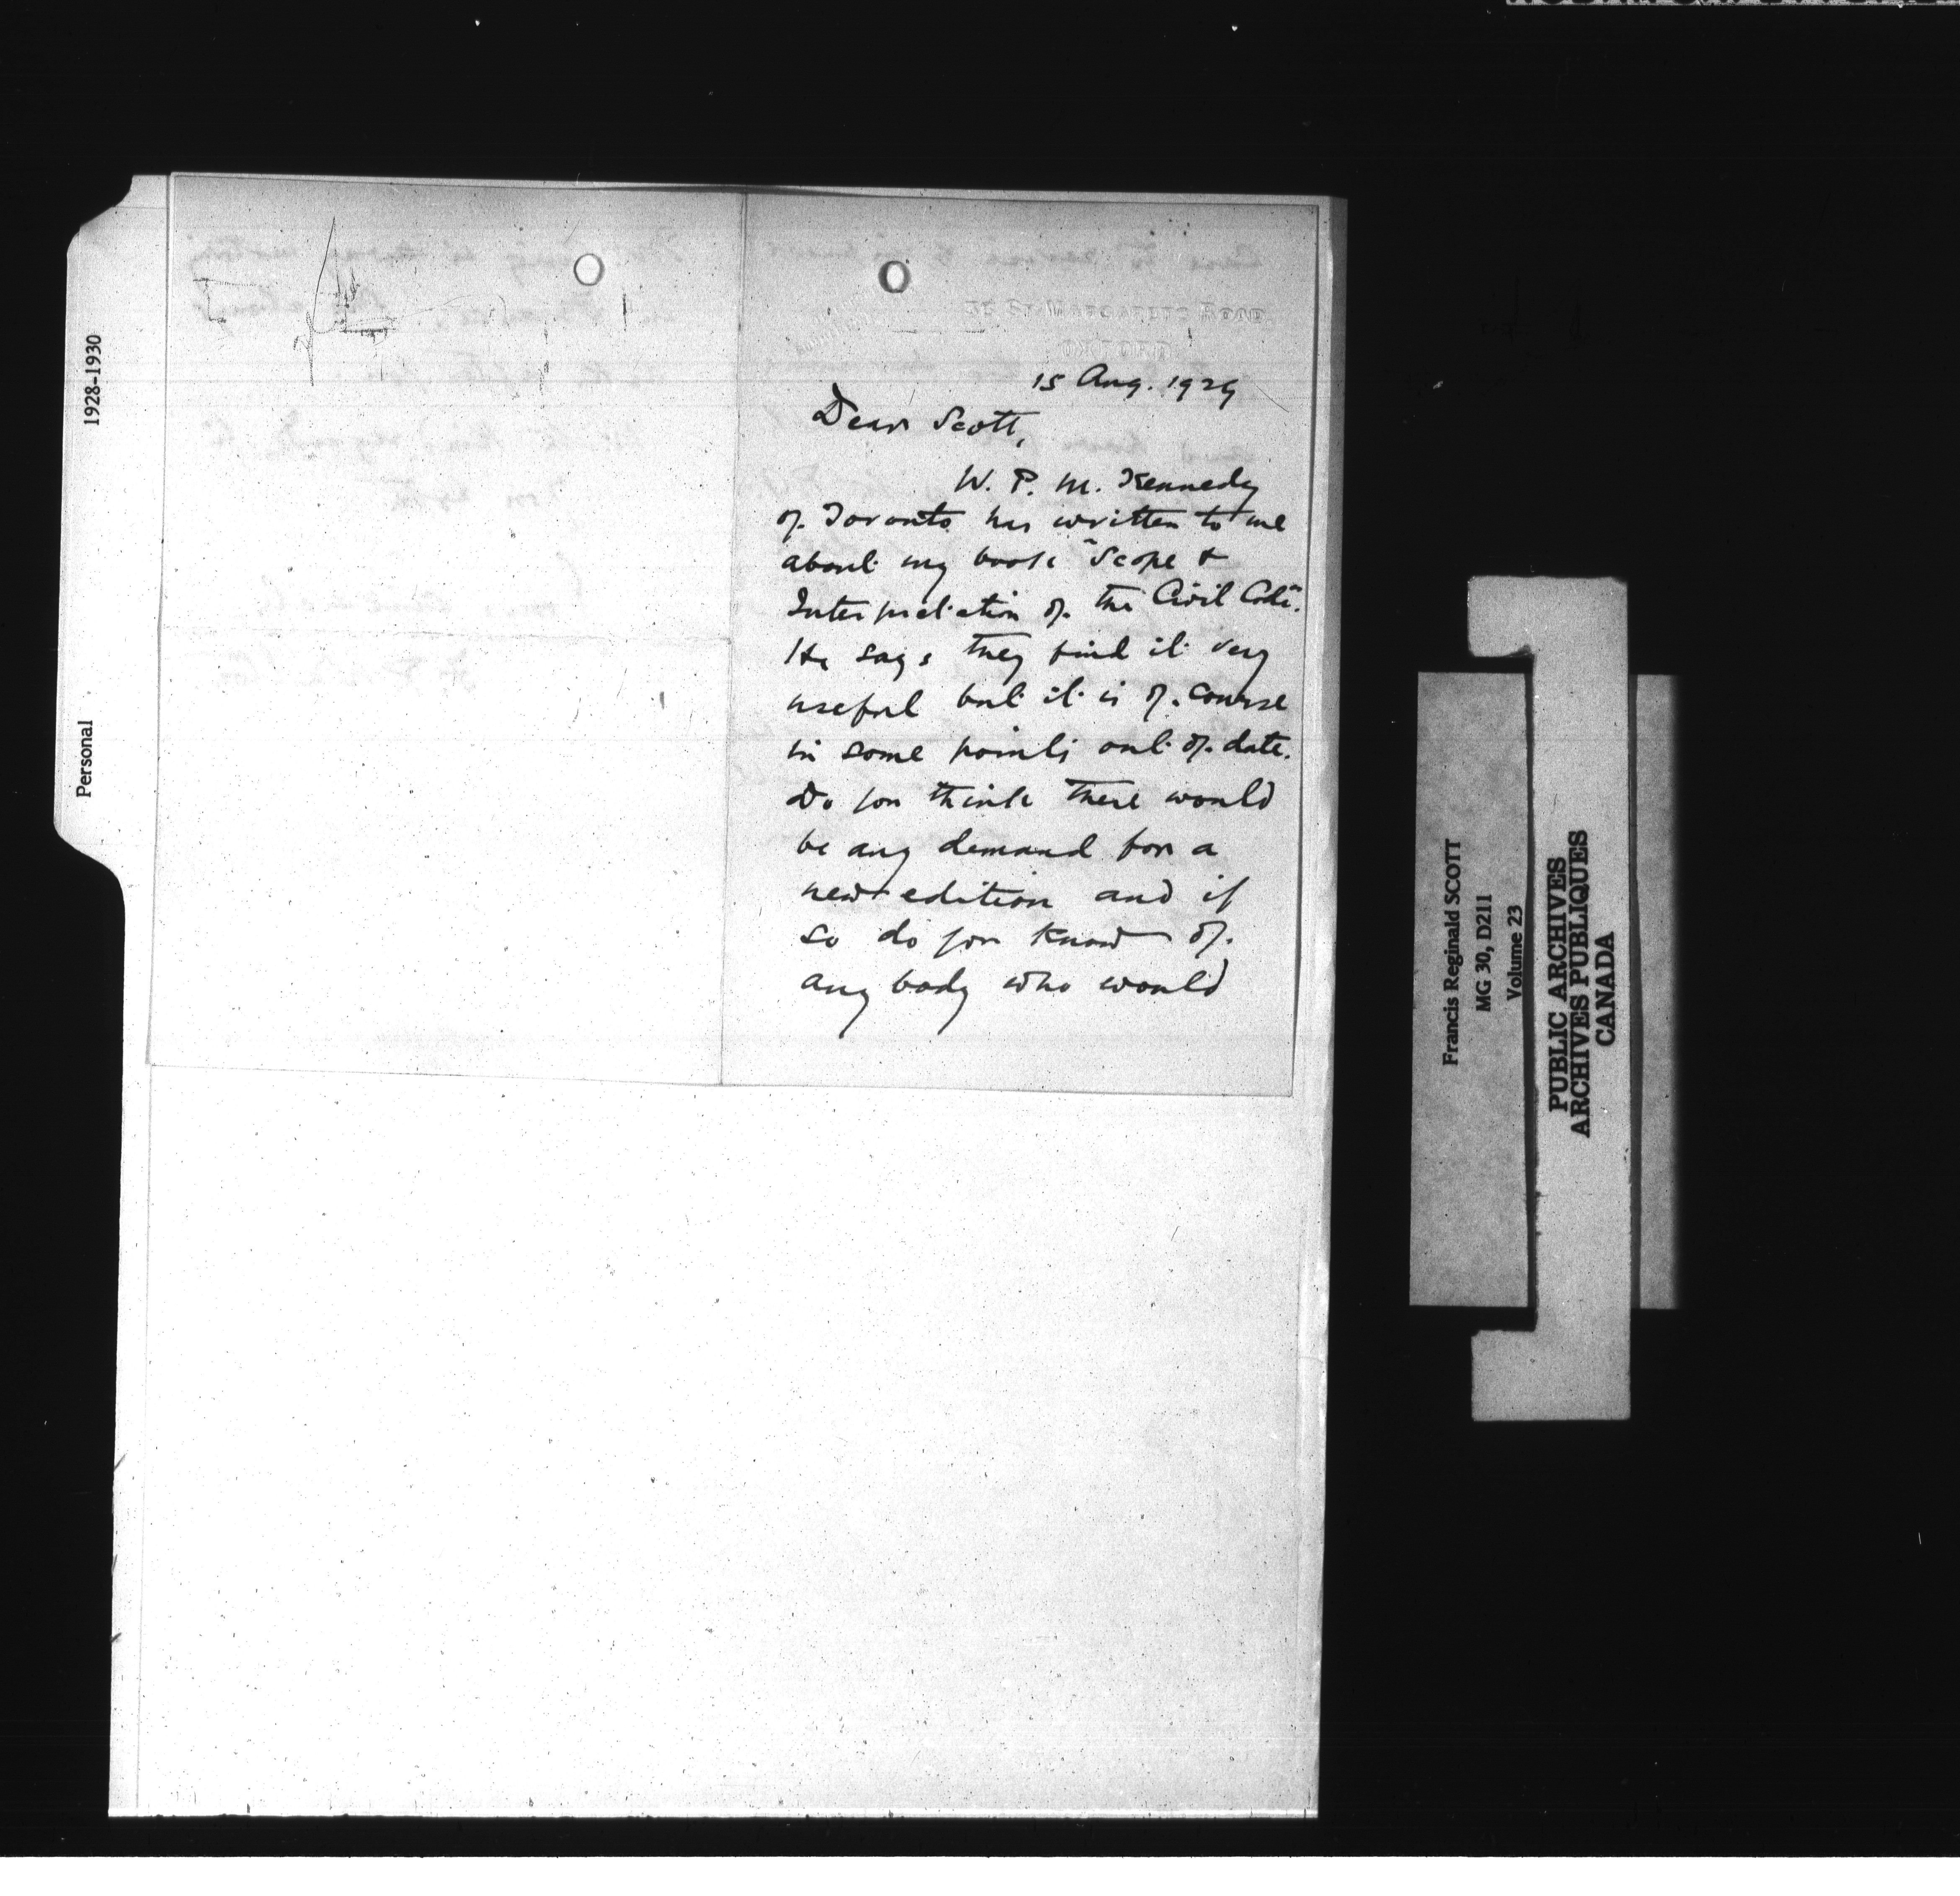 1928-1930
Personal
15 Aug. 1929
Dear Scott,
W. P. M. Kennedy
of Toronto has written to me
about my book "Scope &
Interpretation of the Civil Code".
He says they find it very
useful but it is of course
in some points out of date.
Do you think there would
be any demand for a
new edition and if
so do you know of
any body who would
Francis Reginald SCOTT
MG 30, D211
Volume 23
PUBLIC ARCHIVES
ARCHIVES PUBLIQUES
CANADA